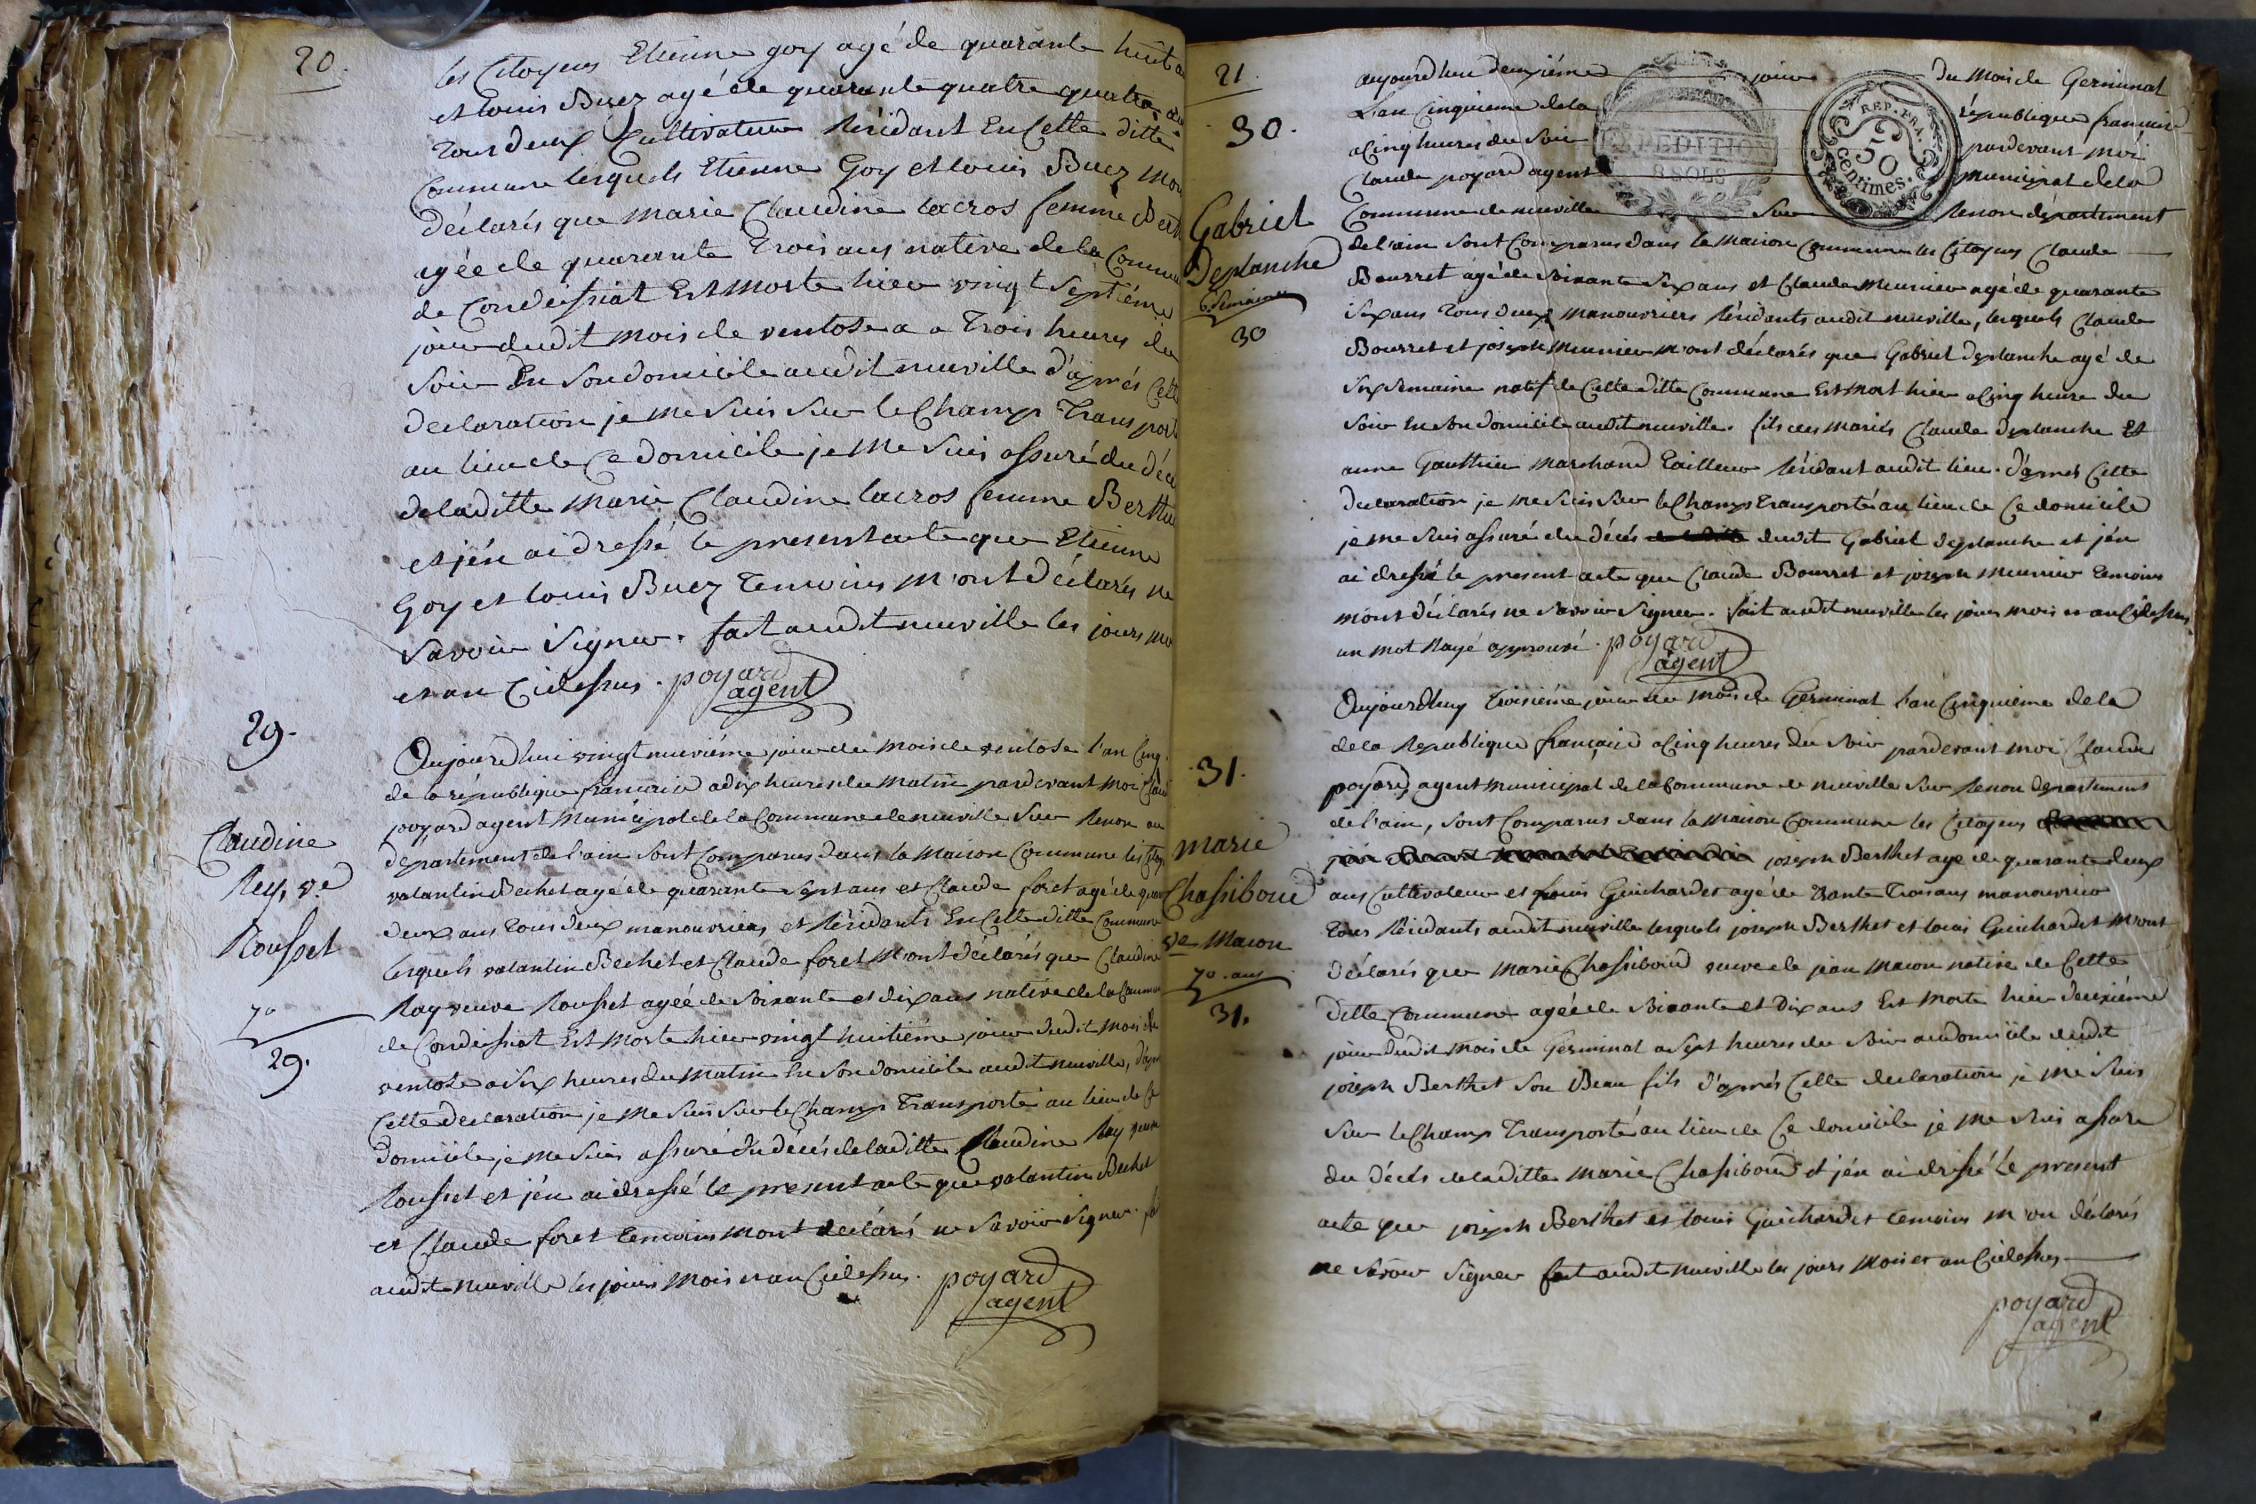 20.
les Citoyens Etienne goy agé de quarante huit a
et Louis Buez agé de quarante quatre
tous deux Cultivateur Résidant En Cette ditte
Commune lesquels Etienne Goy et louis Buez mon
déclarés que marie Claudine lacros femme Bert
agée de quarante trois ans native de la Commu
de Condeissiat Est Morte hier vingt Septiéme
jour dudit mois de ventose a a Trois heures du
Soir En Son domicile audit neuville d'aprés Cett
declaration je me Suis Sur le Champ Transport
au lieu de Ce domicile je me Suis assuré du déc
de laditte marie Claudine lacros femme Berthe
et j'én ai dressé le present acte que Etienne
Goy et louis Buez Temoins m'ont déclarés ne
Savoir Signer. fait audit neuville les jours mo
et an Cidessus. poyard
agent
29.
Claudine
Rey, ve
Rousset
70
29.
Aujourdhui vingt neuviéme jour du mois de ventose l'an Cinq.
de la république francaise a dix heures du matin pardevant moi Clau
poyard agent Municipal de la Commune de neuville Sur Renon au
département de l'ain Sont Comparus dans la Maison Commune les Citoy
valantin Bechet agé de quarante Sept ans et Claude foret agé de quar
deux ans tous deux manouvriers et Résidants En Cette ditte Commune
lesquels valantin Bechet et Claude foret m'ont déclarés que Claudine
Ray veuve Rousset agée de Soixante et dix ans native de la Commu
de Condeissiat Est Morte hier vingt huitiéme jour dudit mois de
ventose a Six heures du Matin En Son domicile audit neuville, d'apr
Cette declaration je me Suis Sur le Champ Transporté au lieu de Ce
domicile je me Suis assuré du décés de laditte Claudine Ray veuve
Rousset et j'én ai dressé le present acte que valantin Bechet
et Claude foret temoins m'ont déclarés ne Savoir Signer. fai
audit neuville les jours mois et an Cidessus. poyard
agent
21.
30.
Gabriel
Deplanche
6 Semaines
30
aujourdhui deuxiéme jour du Mois de Germinal
L'an Cinquieme de la république francaise
EXPEDITION
8 SOLS
REP. FRA.
50
Centimes.
a Cinq heures du Soir pardevant moi
Claude poyard agent municipal de la
Commune de neuville Sur Renon département
de l'ain Sont Comparus dans la Maison Commune les Citoyens Claude
Bourret agé de Soixante Six ans et Claude Meunier agé de quarante
Six ans Tous deux manouvriers Résidants audit neuville, lesquels Claude
Bourret et joseph Meunier m'ont déclarés que Gabriel deplanche agé de
Six Semaine natif de Cette ditte Commune Est Mort hier a Cinq heure du
Soir En Son domicile audit neuville. fils des mariés Claude deplanche Et
anne Gauthier marchand Tailleur Résidant audit lieu. d'aprés Cette
declaration je me Suis Sur le Champ Transporté au lieu de Ce domicile
je me Suis assuré du décés dudit Gabriel deplanche et j'én
ai dressé le present acte que Claude Bourret et joseph Meunier temoins
m'ont déclarés ne Savoir Signer. fait audit neuville les jours mois et an Cidessus.
un mot Rayé approuvé. poyard
agent
31.
marie
Chassiboud
ve Macon
70. ans
31.
Aujourdhuy Troisiéme jour du mois de Germinal l'an Cinquieme de la
de la Republique française a Cinq heures du Soir pardevant moi Claude
poyard, agent municipal de la Commune de neuville Sur Renon département
de l'ain, Sont Comparus dans la Maison Commune les Citoyens
joseph Berthet agé de quarante deux
ans Cultivateur et Louis Guichardet agé de Trante Trois ans manouvrier
Tous Résidants audit neuville lesquels joseph Berthet et louis Guichardet m'ont
déclarés que Marie Chassiboud veuve de jean Macon native de Cette
ditte Commune agée de Soixante et Dix ans Est Morte hier deuxiéme
jour dudit Mois de Germinal a Sept heures du Soir au domicile dudit
joseph Berthet Son Beau fils d'aprés Cette declaration je me Suis
Sur le Champ Transporté au lieu de Ce domicile je me Suis assure
du décés de laditte Marie Chassiboud et j'én ai dréssé le present
acte que joseph Berthet et louis Guichardet temoins m'on déclarés
ne Savoir Signer fait audit neuville les jours Mois et an Cidessus
poyard
agent